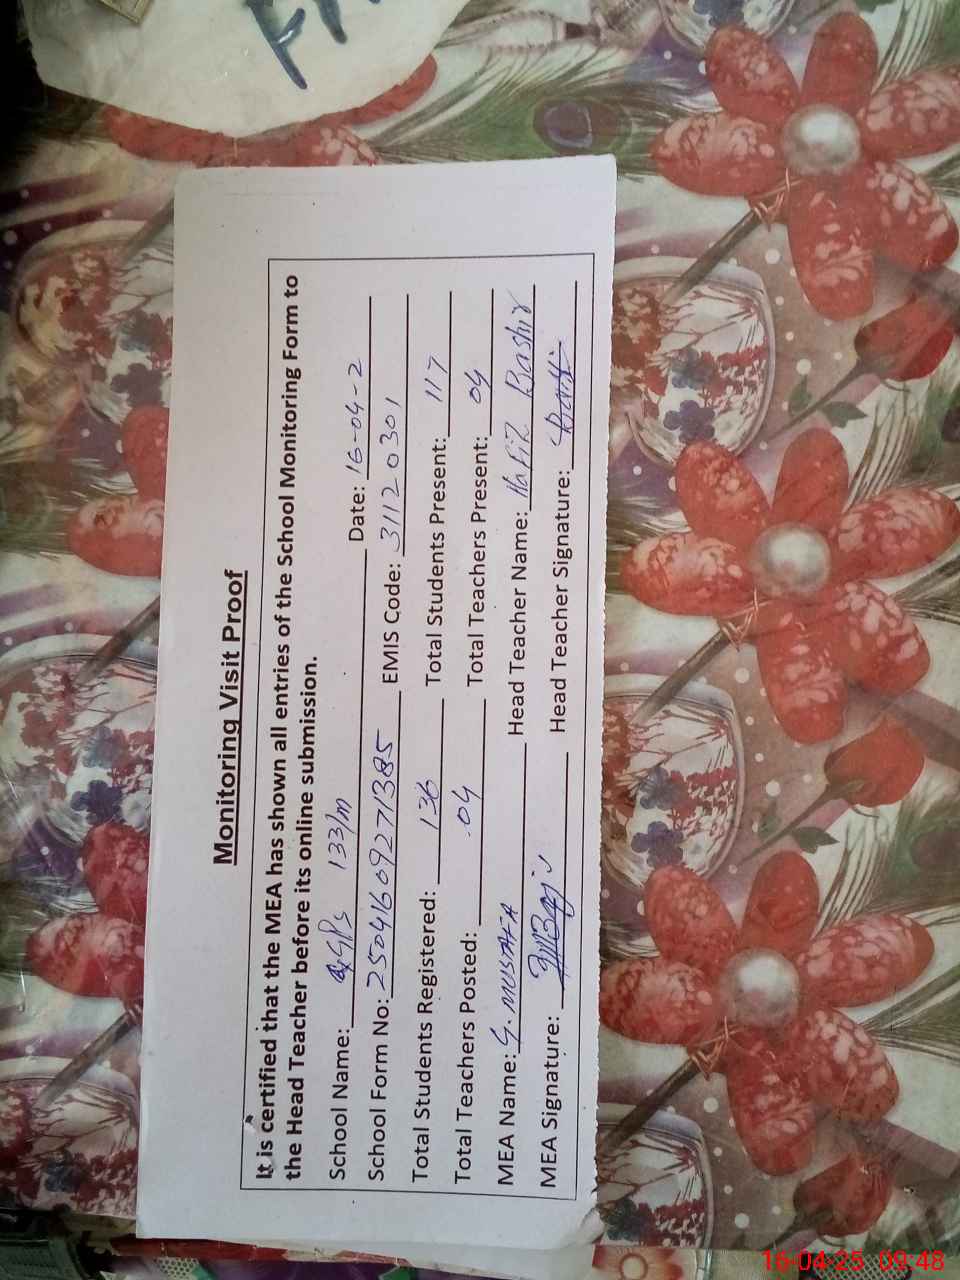 Monitoring Visit Proof
It is certified that the MEA has shown all entries of the School Monitoring Form to
the Head Teacher before its online submission.
School Name: GGPS 133/m Date: 16-04-2
School Form No: 25041609271385 EMIS Code: 31120301
Total Students Registered: 136 Total Students Present: 117
Total Teachers Posted: 04 Total Teachers Present: 04
MEA Name: G. MUSTAFA Head Teacher Name: Hafiz Bashir
MEA Signature: Head Teacher Signature:
16-04-25 09:48